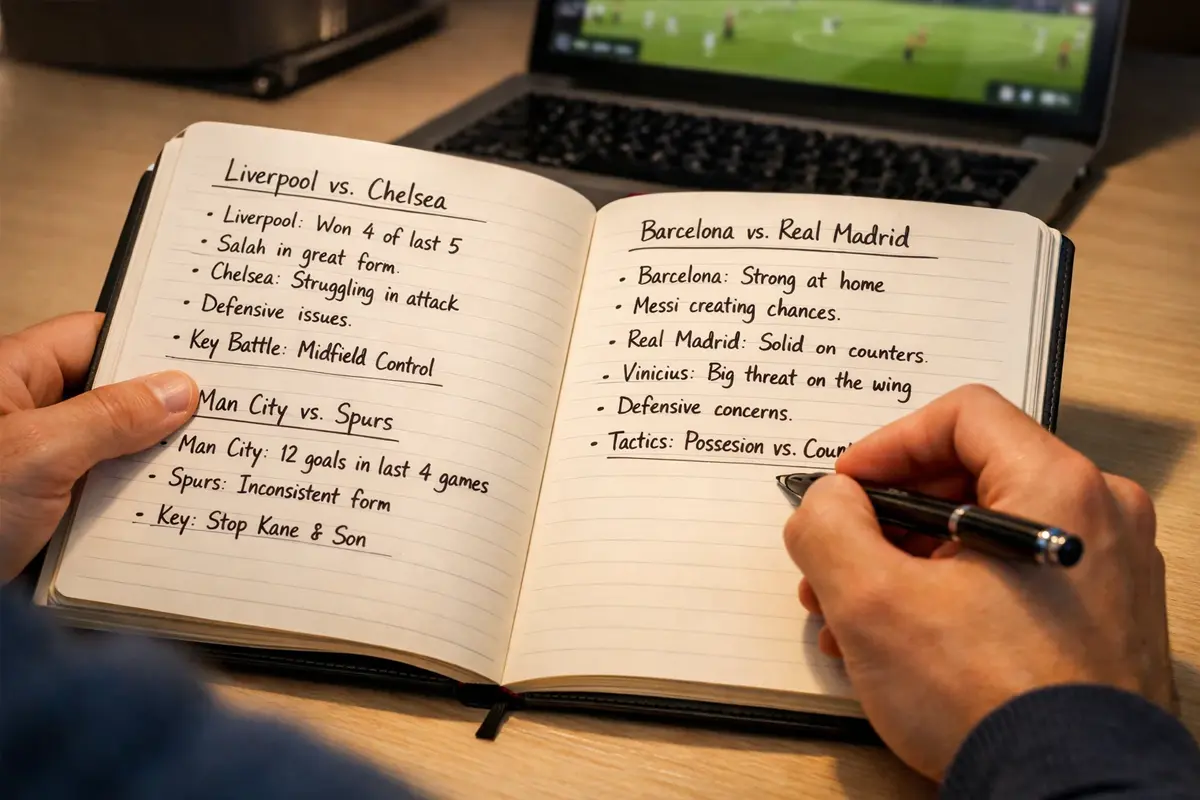 Liverpool vs. Chelsea
• Liverpool: Won 4 of last 5
• Salah in great form.
• Chelsea: Struggling in attack
• Defensive issues.
• Key Battle: Midfield Control
Man City vs. Spurs
• Man City: 12 goals in last 4 games
• Spurs: Inconsistent form
• Key: Stop Kane & Son
Barcelona vs. Real Madrid
• Barcelona: Strong at home
• Messi creating chances.
• Real Madrid: Solid on counters.
• Vinicius: Big threat on the wing
• Defensive concerns.
• Tactics: Possesion vs.